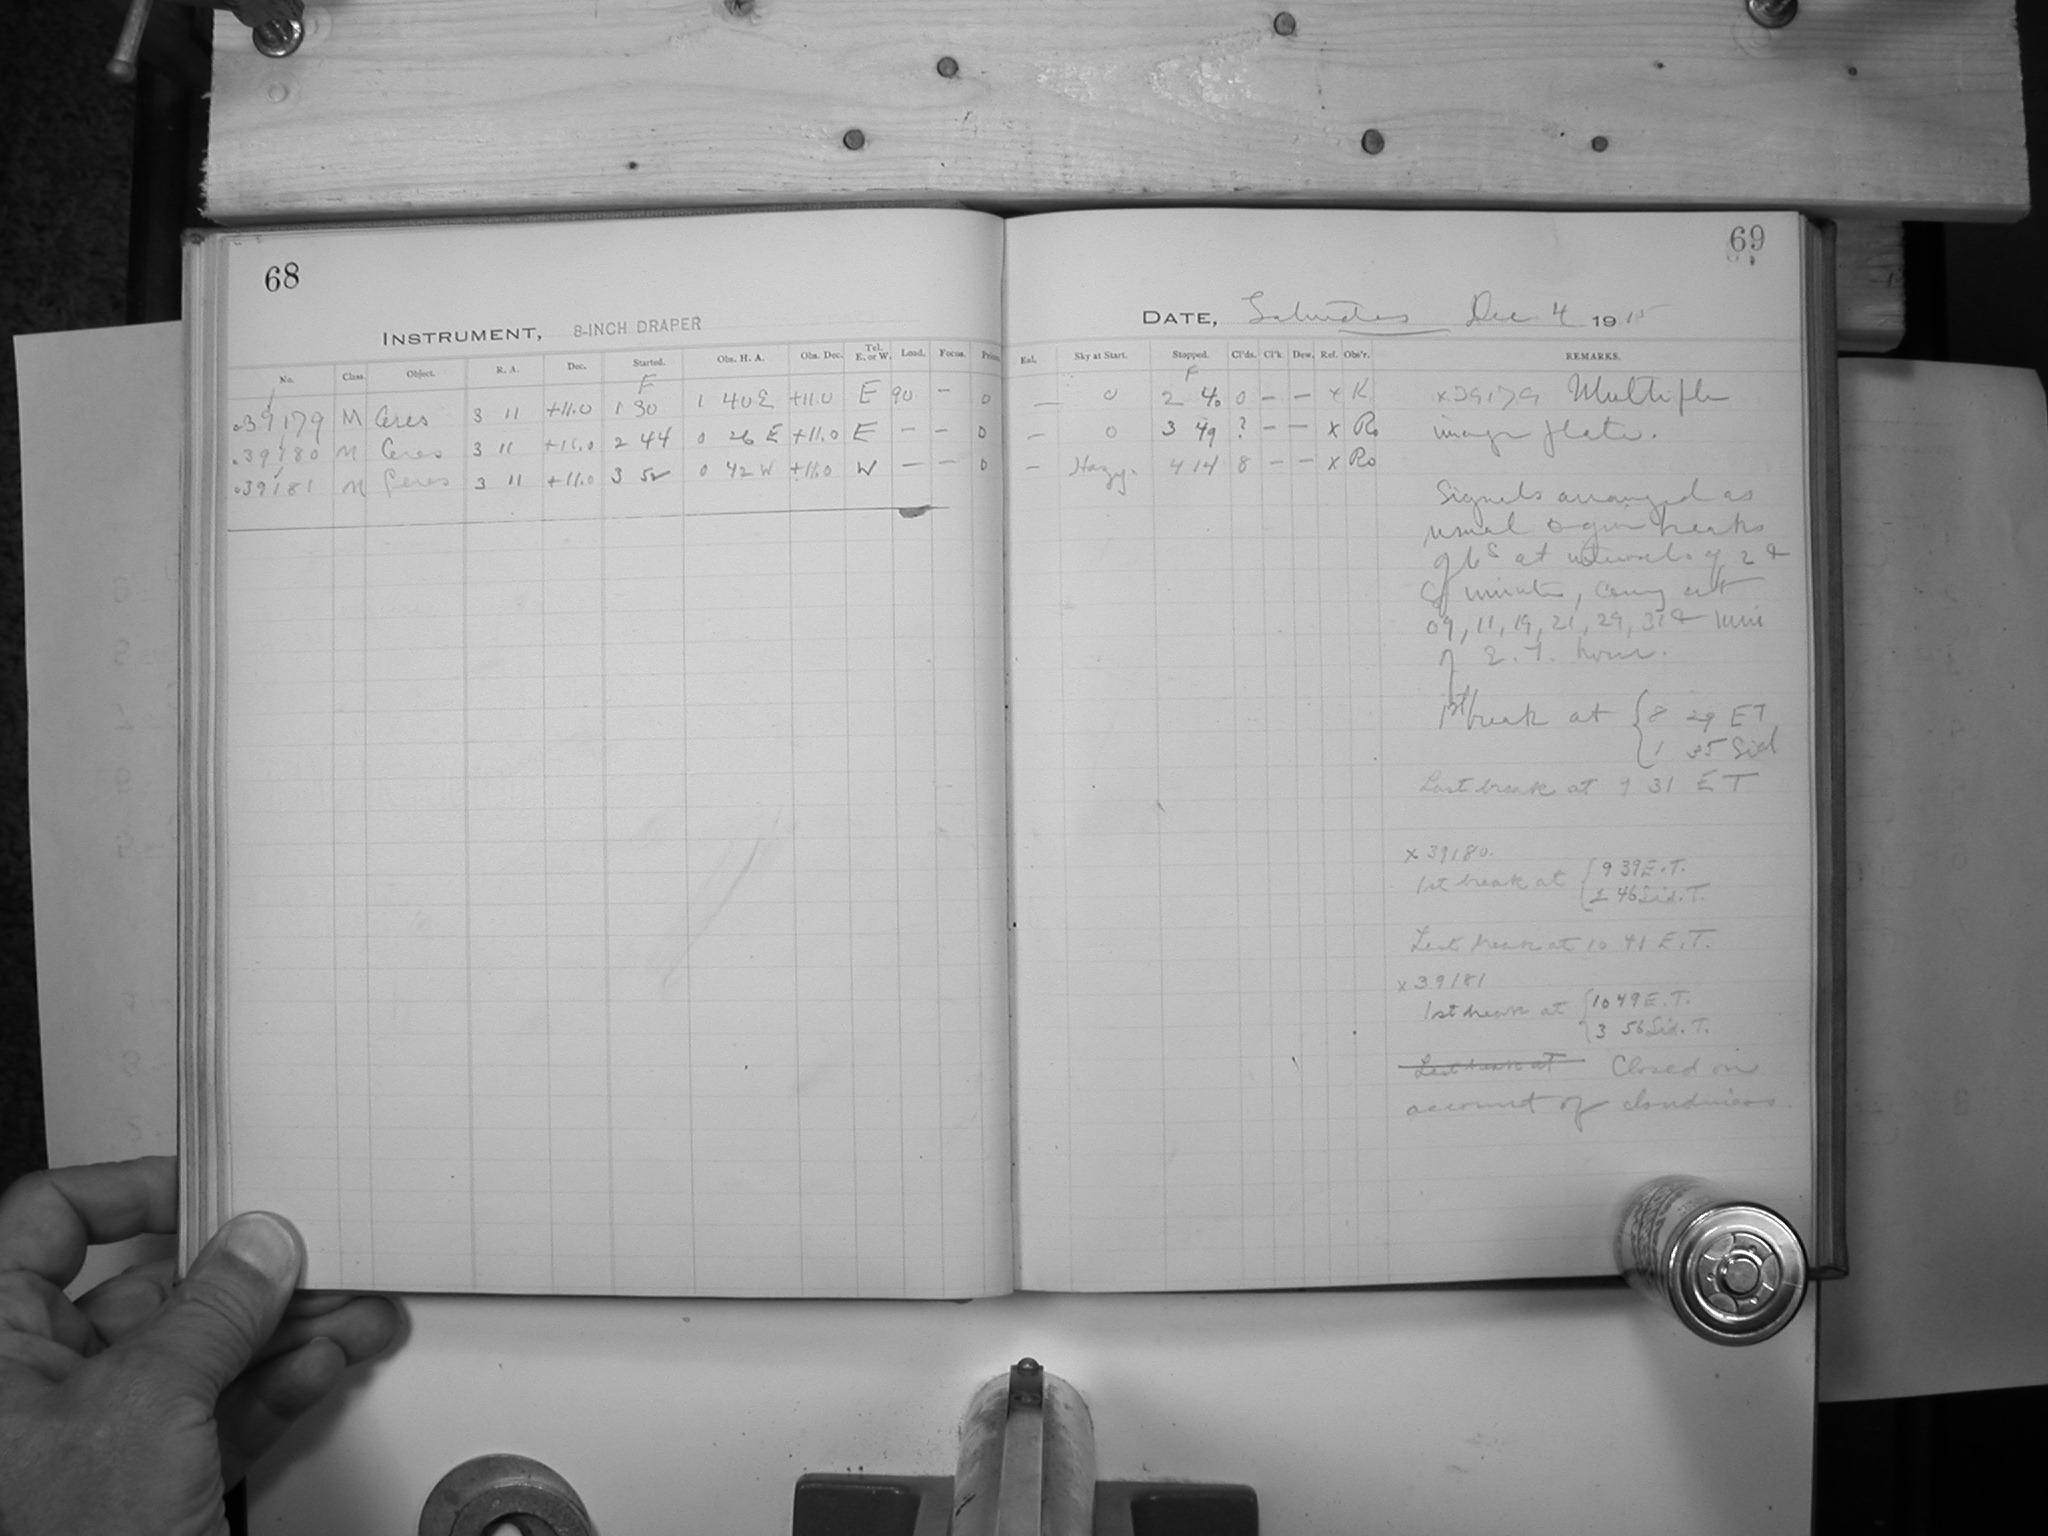 68
INSTRUMENT, 8-INCH DRAPER
No. Class. Object. R. A. Dec. Started. Obs. H. A. Obs. Dec. Tel. E. or W. Load. Focus.
F
39179 M Ceres 3 11 +11.0 1 30 1 40 E +11.0 E 90 – 0
39180 M Ceres 3 11 +11.0 2 44 0 26 E +11.0 E – – 0
39181 M Ceres 3 11 +11.0 3 52 0 42 W +11.0 W – – 0
69
DATE, Saturday Dec 4 1915
Sky at Start. Stopped. Cl'ds. Cl'k Dew. Ref. Obs'r. REMARKS.
F
— 0 2 40 0 – – x K x39179 Multiple
— 0 3 49 ? – – x Ro image plate.
– Hazy. 4 14 8 – – x Ro
Signals arranged as
usual giving breaks
of 6s at intervals of 2 &
8 minutes, coming at
09, 11, 19, 21, 29, 31 &
of E. T. hour.
1st break at { 8 29 ET
1 35 Sid
Last break at 9 31 ET
x 39180.
1st break at { 9 39 E.T.
2 46 Sid. T.
Last break at 10 41 E.T.
x 39181
1st break at { 10 49 E.T.
3 56 Sid. T.
Last break at Closed on
account of cloudiness